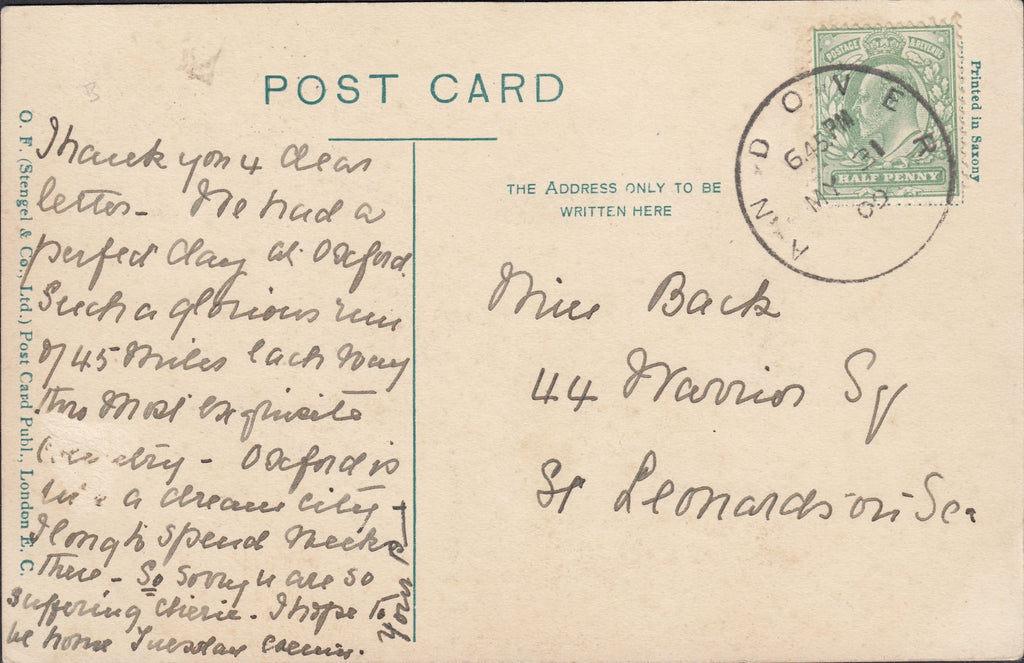 POST CARD
THE ADDRESS ONLY TO BE
WRITTEN HERE
Printed in Saxony
POSTAGE & REVENUE
HALF PENNY
ANDOVER
6.45PM
MY 31
09
O. F. (Stengel & Co., Ltd.) Post Card Publ., London E. C.
Thank you 4 dear
letter - We had a
perfect day at Oxford.
Such a glorious run
of 45 miles each way
thro most exquisite
country - Oxford is
like a dream city -
I long to spend weeks
there - So sorry u are so
suffering cherie. I hope to
be home Tuesday
Miss Back
44 Warrior Sq
St Leonards-on-Sea